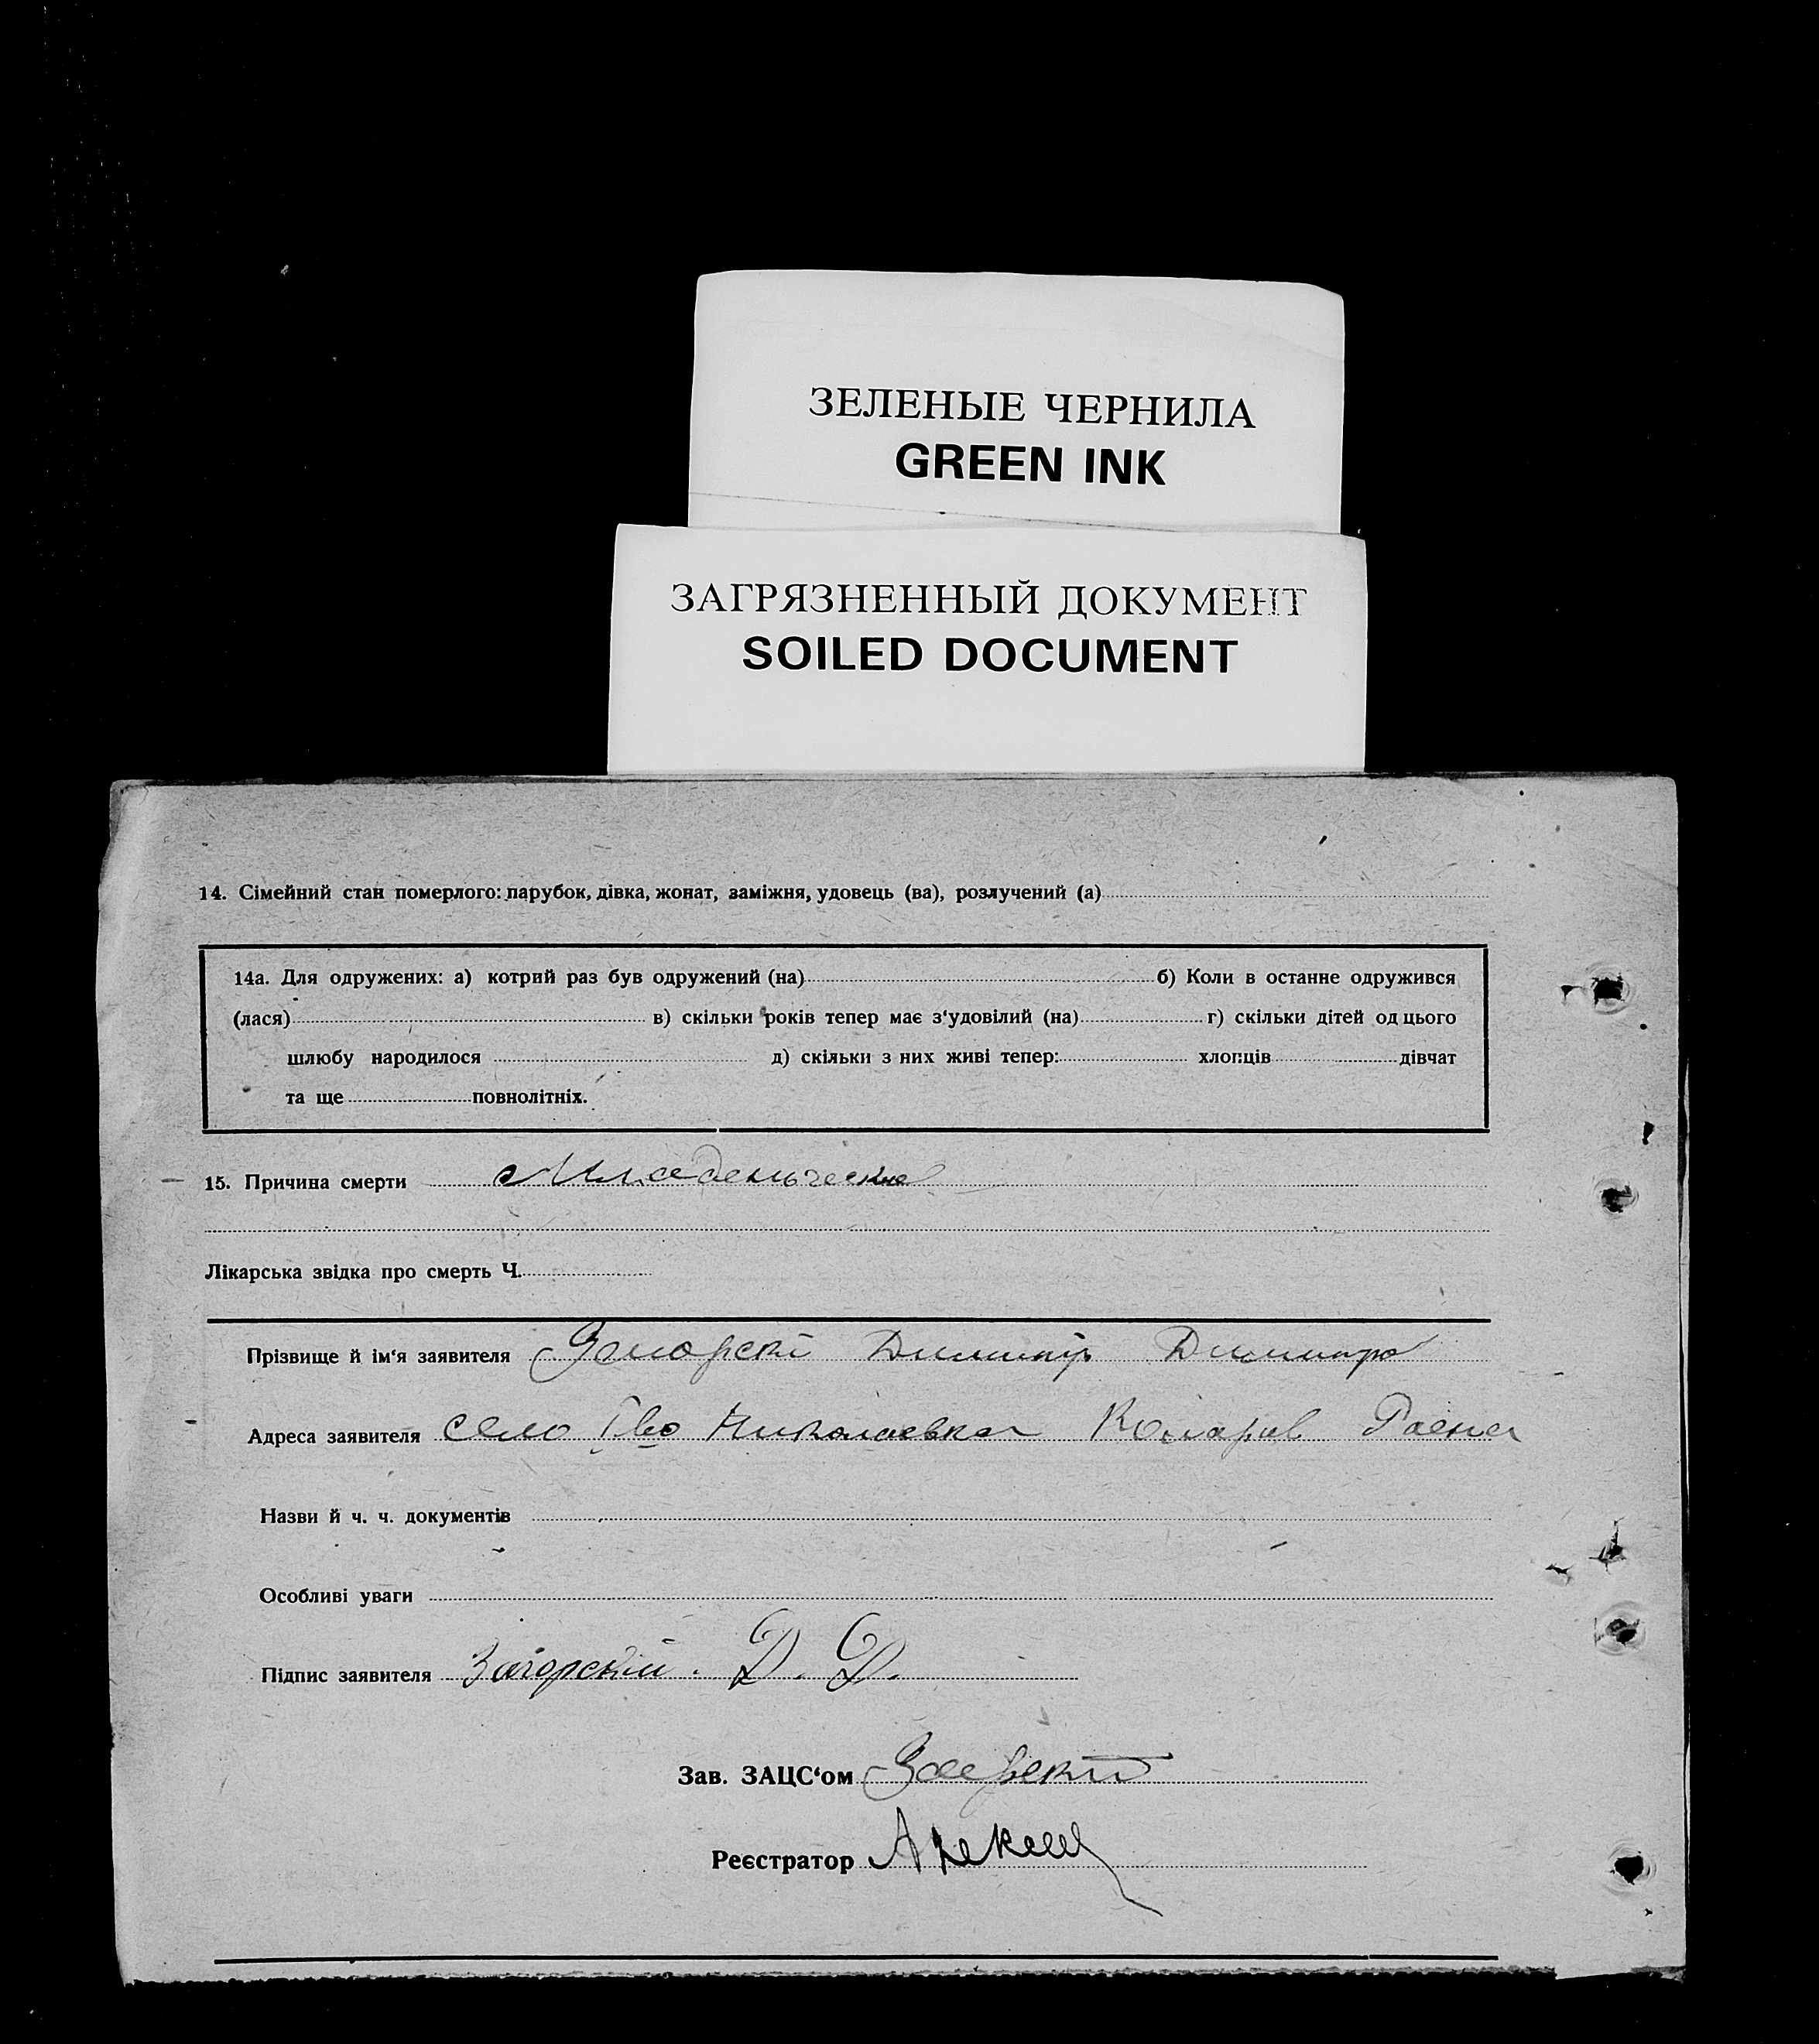 ЗЕЛЕНЫЕ ЧЕРНИЛА
GREEN INK
ЗАГРЯЗНЕННЫЙ ДОКУМЕНТ
SOILED DOCUMENT
14. Сімейний стан померлого: парубок, дівка, жонат, заміжня, удовець (ва), розлучений (а)
14а. Для одружених: а) котрий раз був одружений (на) б) Коли в останнє одружився
(лася) в) скільки років тепер має з‘удовілий (на) г) скільки дітей од цього
шлюбу народилося д) скільки з них живі тепер: хлопців дівчат
та ще повнолітніх.
15. Причина смерти Младенческие
Лікарська звідка про смерть Ч.
Прізвище й ім‘я заявителя Димитр Димитро
Адреса заявителя село Николаевка Раена
Назви й ч. ч. документів
Особливі уваги
Підпис заявителя Загорский. Д. Д.
Зав. ЗАЦС‘ом
Реєстратор